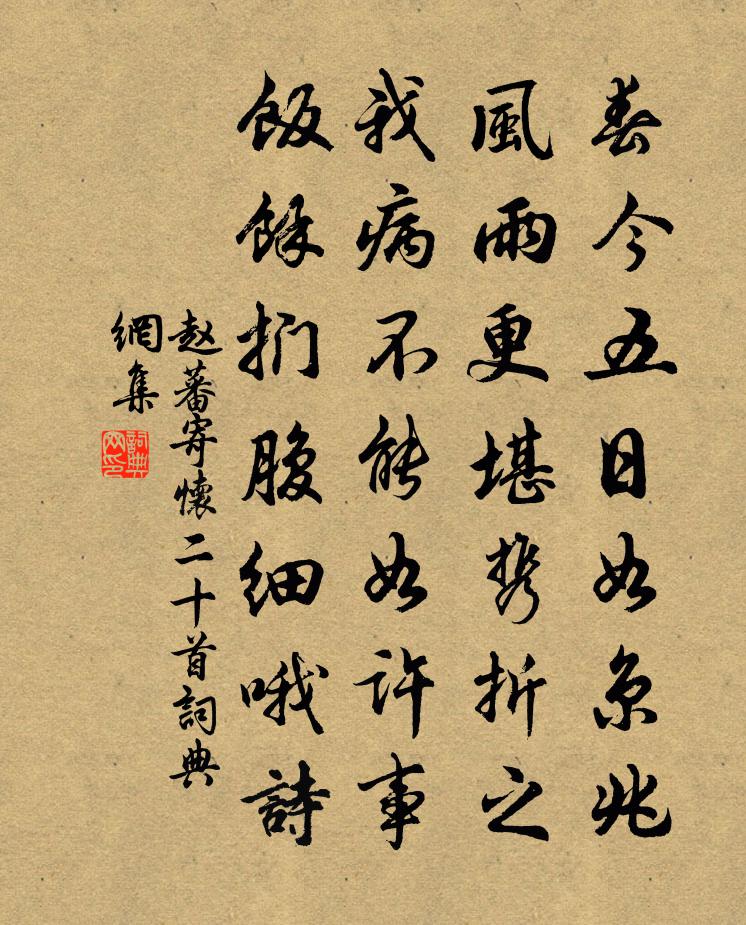 春今五日如京兆
風雨更堪攜折之
我病不能如許事
飯餘捫腹細哦詩
赵蕃寄懷二十首詞典
網集
詞典
网印